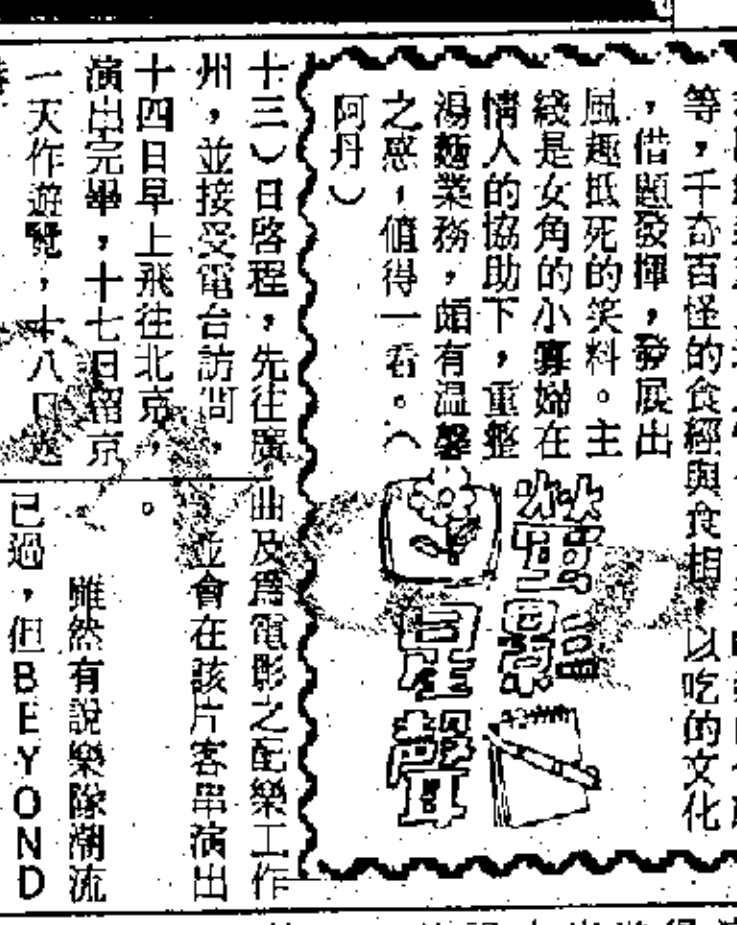 等，千奇百怪的食經與食相，以吃的文化
，借題發揮，發展出
風趣抵死的笑料。主
綫是女角的小寡婦在
情人的協助下，重整
湯麵業務，頗有温馨
之感，值得一看。（
阿丹）
螢幕
星聲
十三）日啓程，先往廣
州，並接受電台訪問，
十四日早上飛往北京，
演出完畢，十七日留京
一天作遊覽，十八日
曲及爲電影之配樂工作
，並會在該片客串演出
。
雖然有說樂隊潮流
已過，但BEYOND